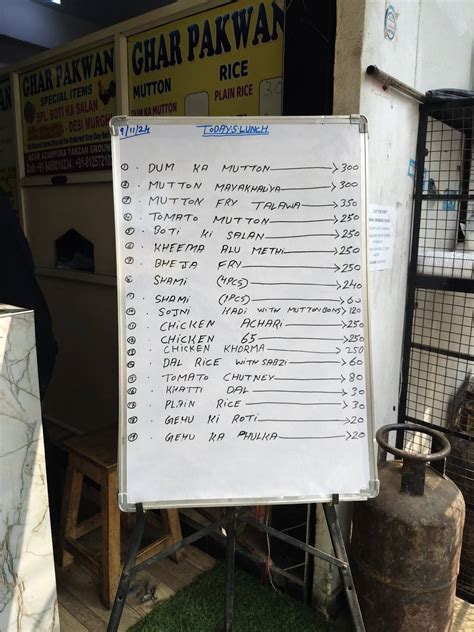 GHAR PAKWAN
SPECIAL ITEMS
SPL BOTI KA SALAN
- DESI MURGH
GHAR PAKWAN
MUTTON RICE
DUM KA MUTTON PLAIN RICE
9/11/24 TODAYS LUNCH
1 . DUM KA MUTTON 300
2 . MUTTON MAYAKHALIYA 300
. MUTTON FRY TALAWA 350
4 . TOMATO MUTTON 250
5 . BOTI KI SALAN 250
6 . KHEEMA ALU METHI 250
7 . BHEJA FRY 250
8 . SHAMI (4PCS) 240
9 . SHAMI (1PCS) 60
10 . SOJNI KADI WITH MUTTON BONS 120
11 . CHICKEN ACHARI 250
12 . CHICKEN 65 250
13 . CHICKEN KHORMA 250
14 . DAL RICE WITH SABZI 60
15 . TOMATO CHUTNEY 80
16 . KHATTI DAL 30
17 . PLAIN RICE 30
18 . GEHU KI ROTI 20
19 . GEHU KA PHULKA 20